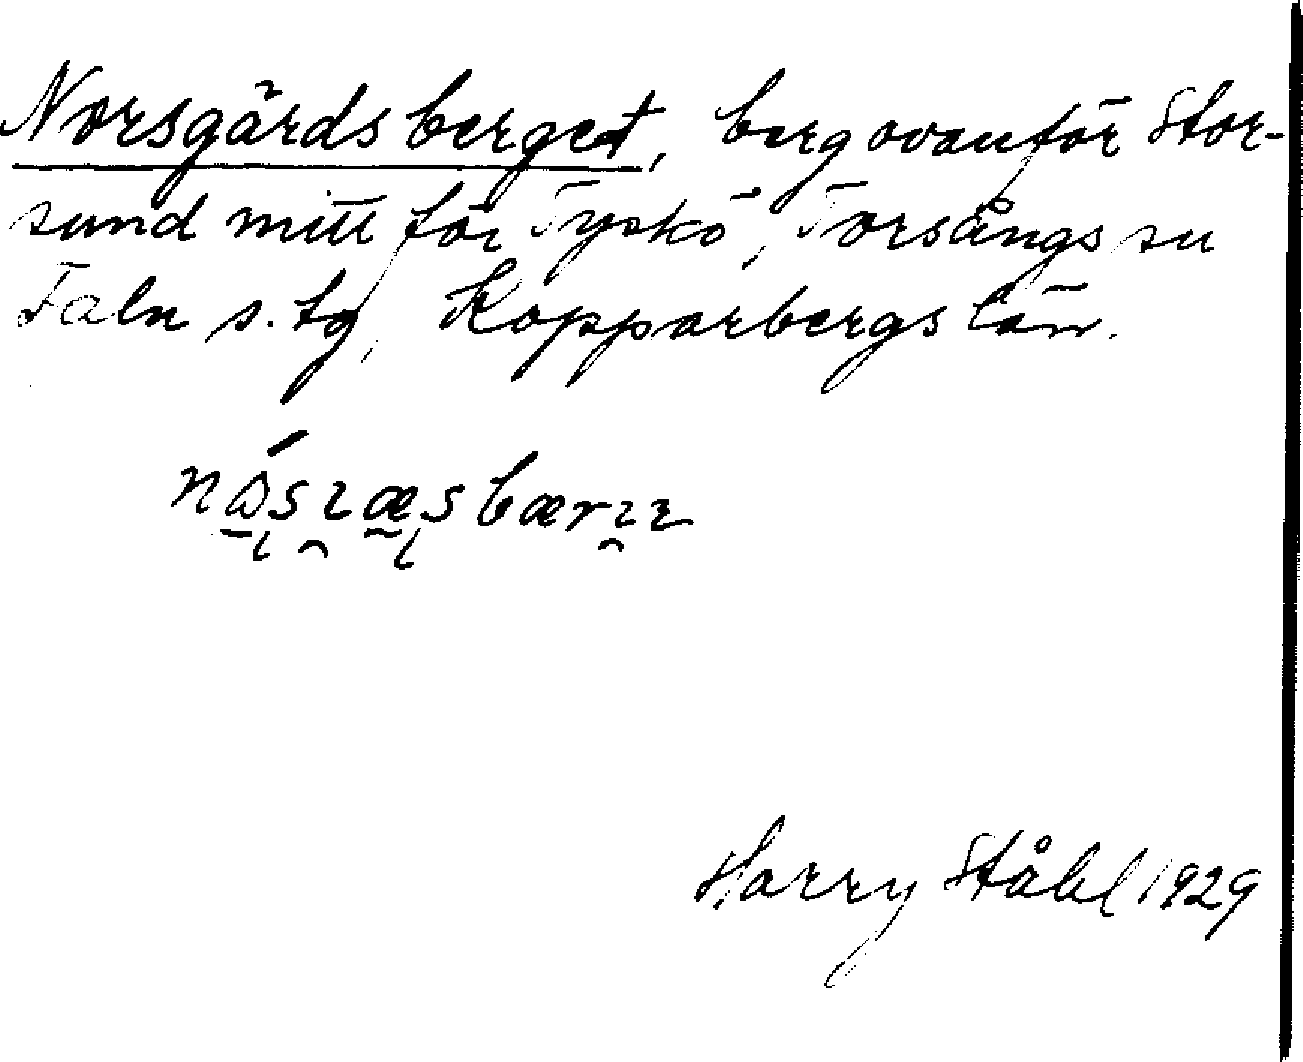 Norsgårdsberget, berg ovanför Stor-
sund mitt för Tyskö, Torsångs sn
Falu s. tg, Kopparbergs län.
Harry Ståhl 1929